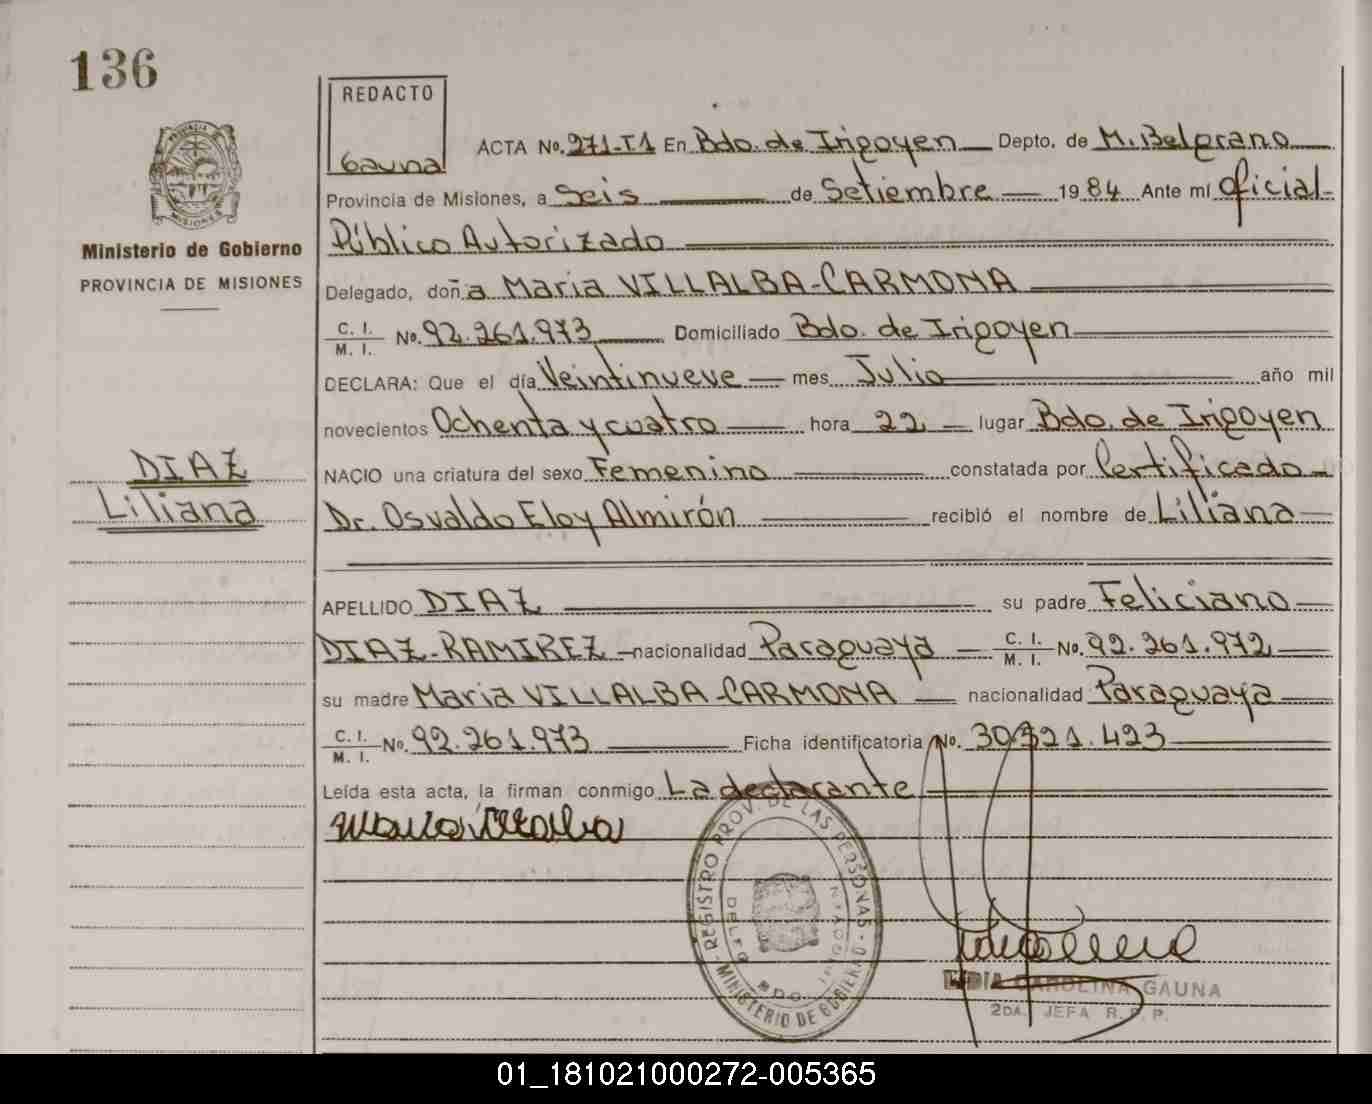 136
REDACTO
Gauna
Ministerio de Gobierno
PROVINCIA DE MISIONES
DIAZ
Liliana
ACTA No. 271-T1 En Bdo. de Irigoyen Depto. de M. Belgrano
Provincia de Misiones, a Seis de Setiembre 1984 Ante mí Oficial
Público Autorizado
Delegado, doña Maria VILLALBA-CARMONA
C. I. M. I. No. 92.261.973 Domiciliado Bdo. de Irigoyen
DECLARA: Que el día Veintinueve mes Julio año mil
novecientos Ochenta y cuatro hora 22 lugar Bdo. de Irigoyen
NACIO una criatura del sexo Femenino constatada por Certificado
Dr. Osvaldo Eloy Almirón recibió el nombre de Liliana
APELLIDO DIAZ su padre Feliciano
DIAZ-RAMIREZ nacionalidad Paraguaya C. I. M. I. No. 92.261.972
su madre Maria VILLALBA-CARMONA nacionalidad Paraguaya
C. I. M. I. No. 92.261.973 Ficha identificatoria No. 30.321.423
Leída esta acta, la firman conmigo La declarante
Maria Villalba
REGISTRO PROV. DE LAS PERSONAS - MINISTERIO DE GOBIERNO
LIDIA CAROLINA GAUNA
2DA. JEFA R. P. P.
01_181021000272-005365